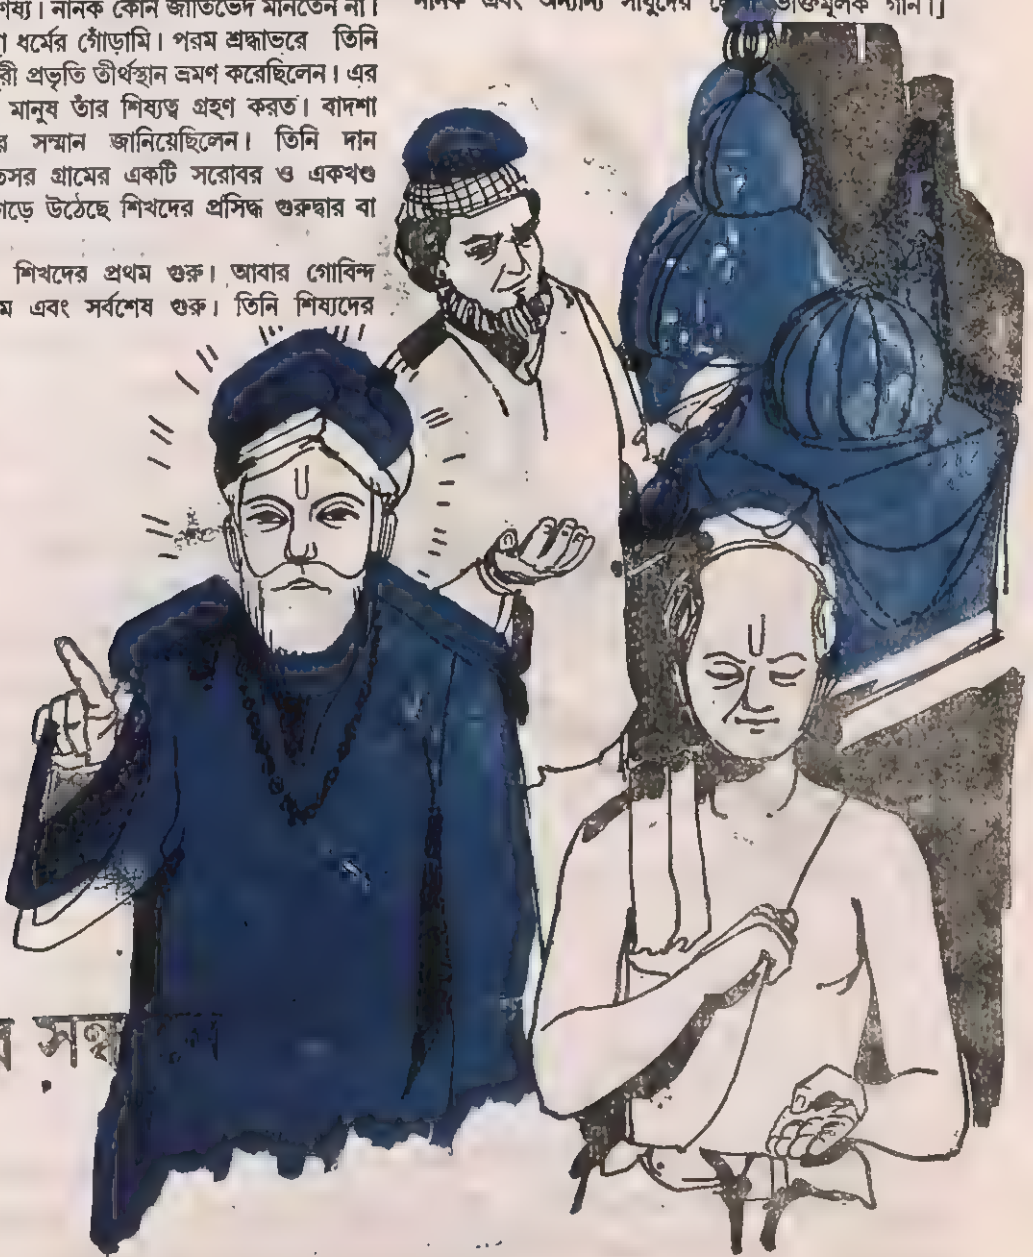 শিষ্য। নানক কোন জাতিভেদ মানতেন না।
ধর্মের গোঁড়ামি। পরম শ্রদ্ধাভরে তিনি
প্রভৃতি তীর্থস্থান ভ্রমণ করেছিলেন। এর
মানুষ তাঁর শিষ্যত্ব গ্রহণ করত। বাদশা
সম্মান জানিয়েছিলেন। তিনি দান
গ্রামের একটি সরোবর ও একখণ্ড
গড়ে উঠেছে শিখদের প্রসিদ্ধ গুরুদ্বার বা
শিখদের প্রথম গুরু। আবার গোবিন্দ
এবং সর্বশেষ গুরু। তিনি শিষ্যদের
নানক এবং অন্যান্য সাধুদের ভক্তিমূলক গান।]